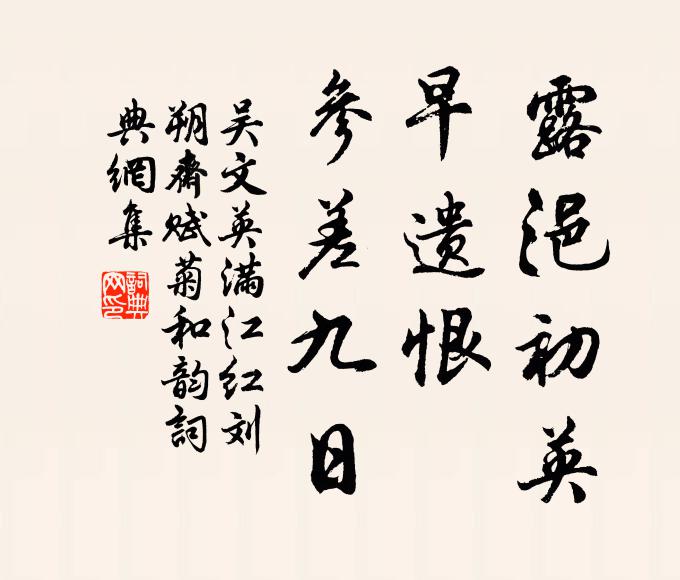 露浥初英
早遗恨
參差九日
吴文英满江红刘
朔齋赋菊和韵詞
典網集
詞典网印